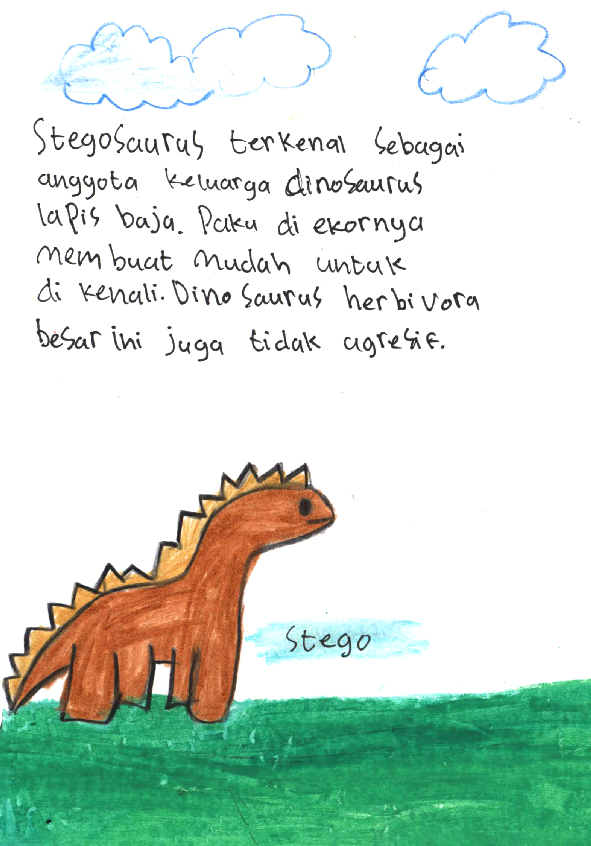 Stegosaurus terkenal sebagai
anggota keluarga dinosaurus
lapis baja. Paku di ekornya
membuat mudah untuk
di kenali. Dinosaurus herbivora
besar ini juga tidak agresif.
Stego